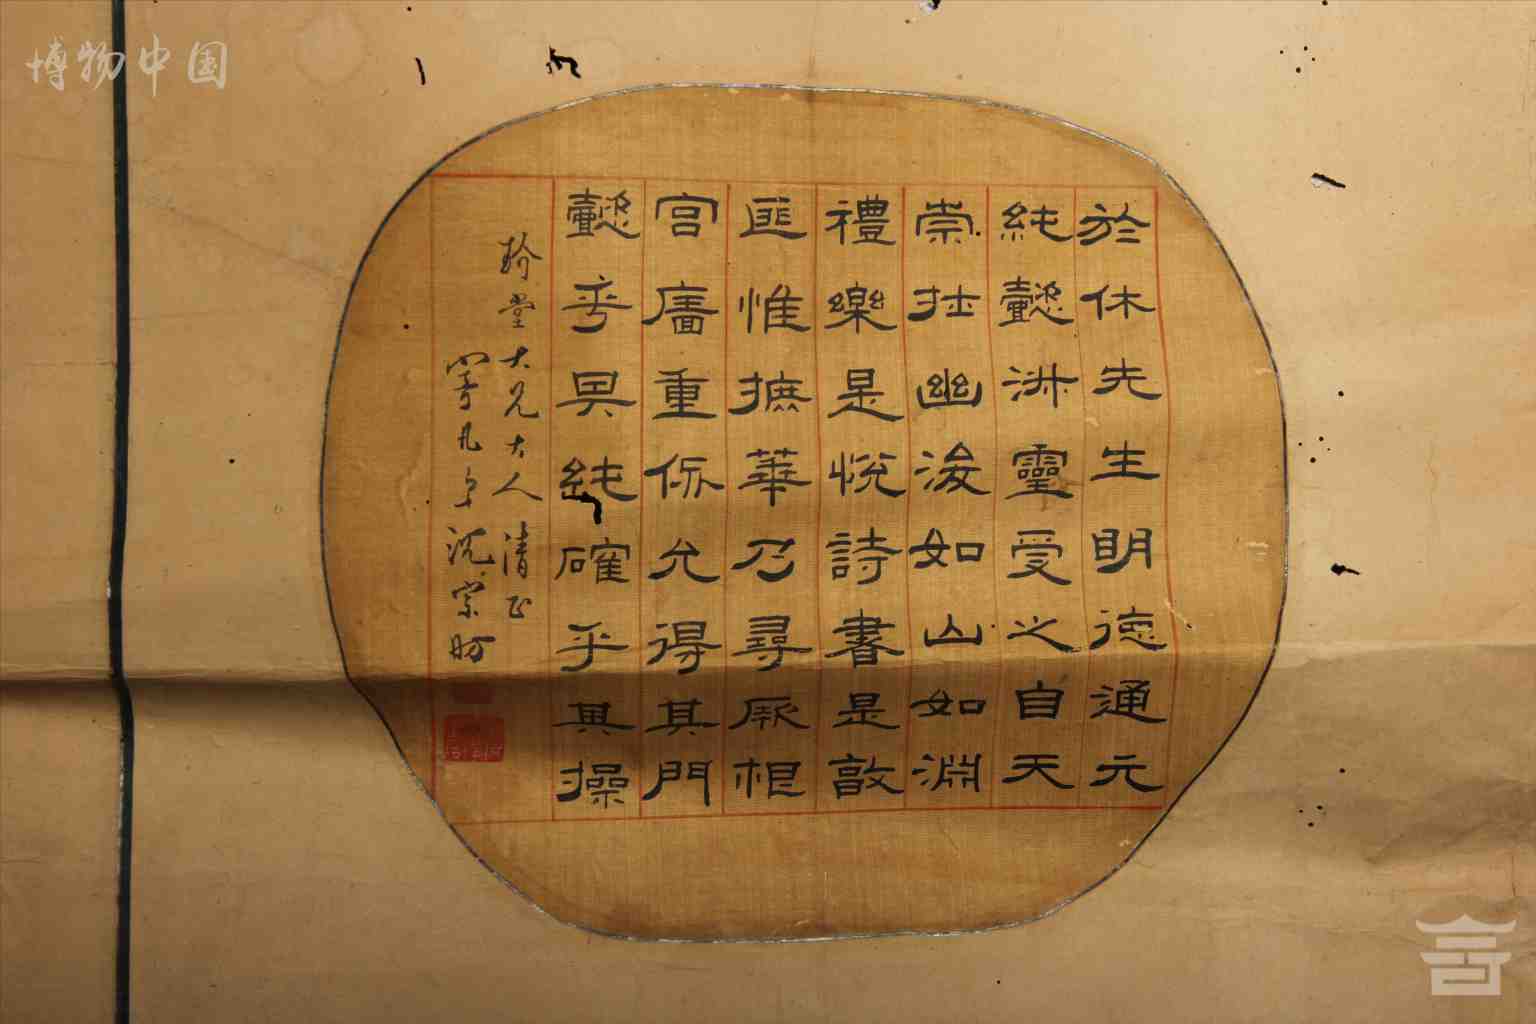 博物中国
於休先生明德通元
純懿淑靈受之自天
崇壯幽浚如山如淵
禮樂是悅詩書是敦
匪惟摭華乃尋厥根
宮廧重仞允得其門
懿乎其純確乎其操
堂大兄大人清正
沈宗昉